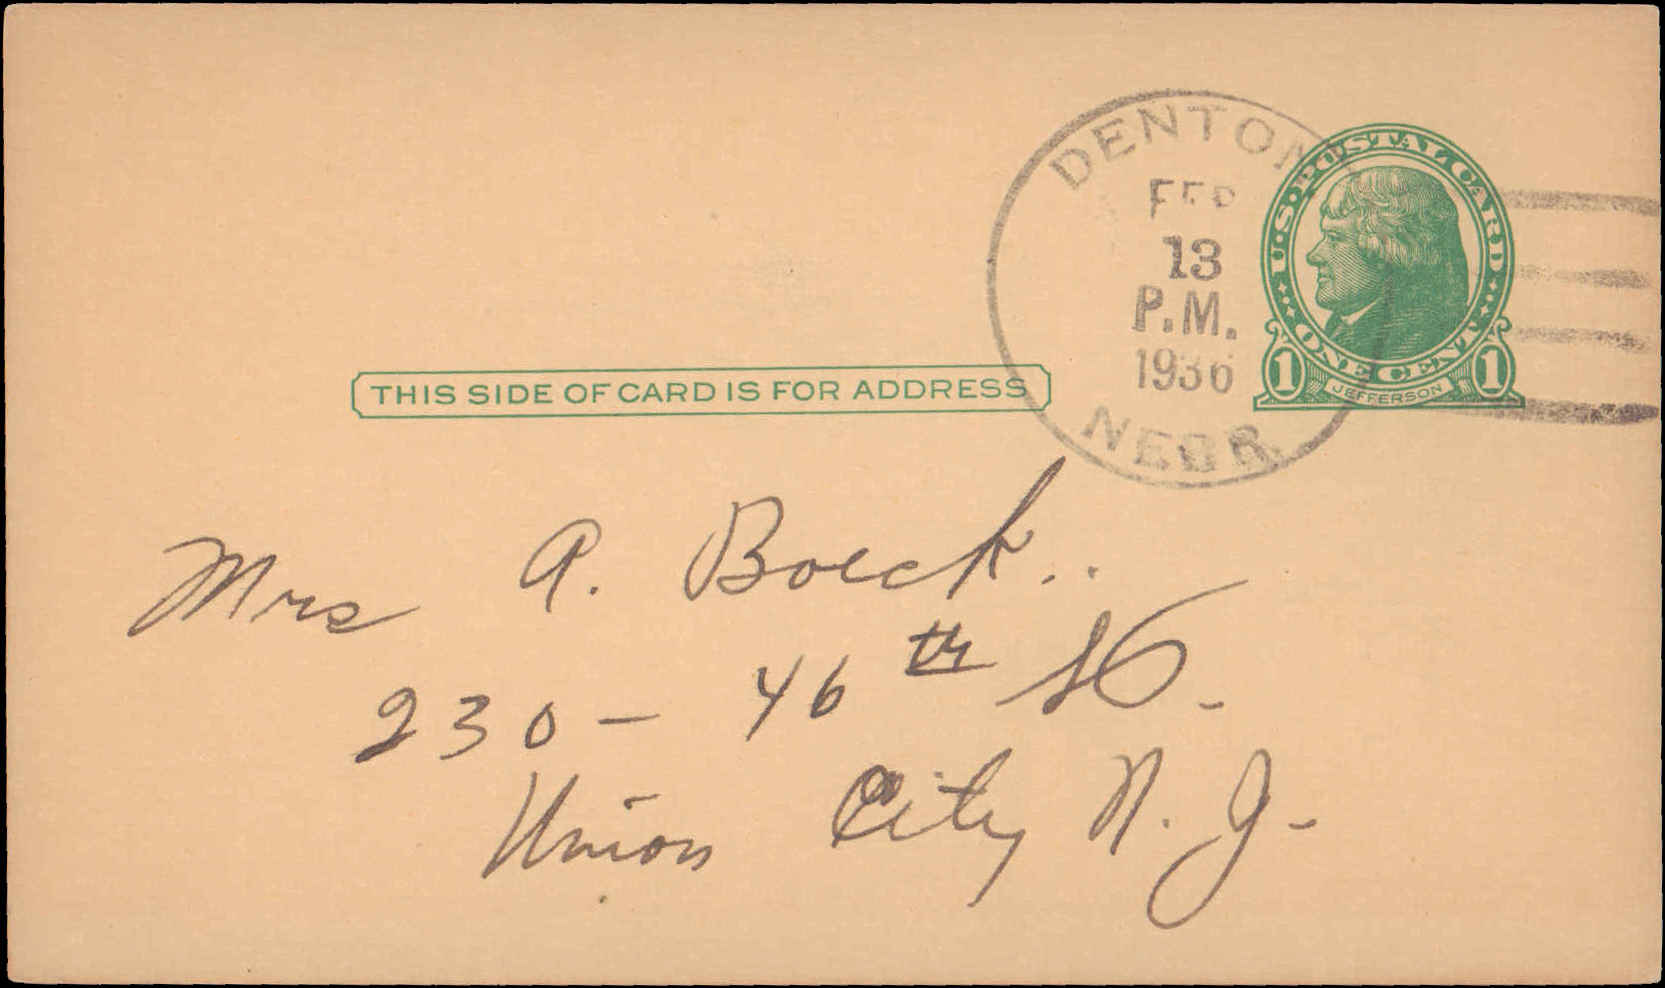 DENTON
FEB
13
P.M.
1936
NEBR.
U.S. POSTAL CARD
ONE CENT
1 JEFFERSON 1
THIS SIDE OF CARD IS FOR ADDRESS
Mrs A. Boeck..
230 - 46th St.
Union City N. J.